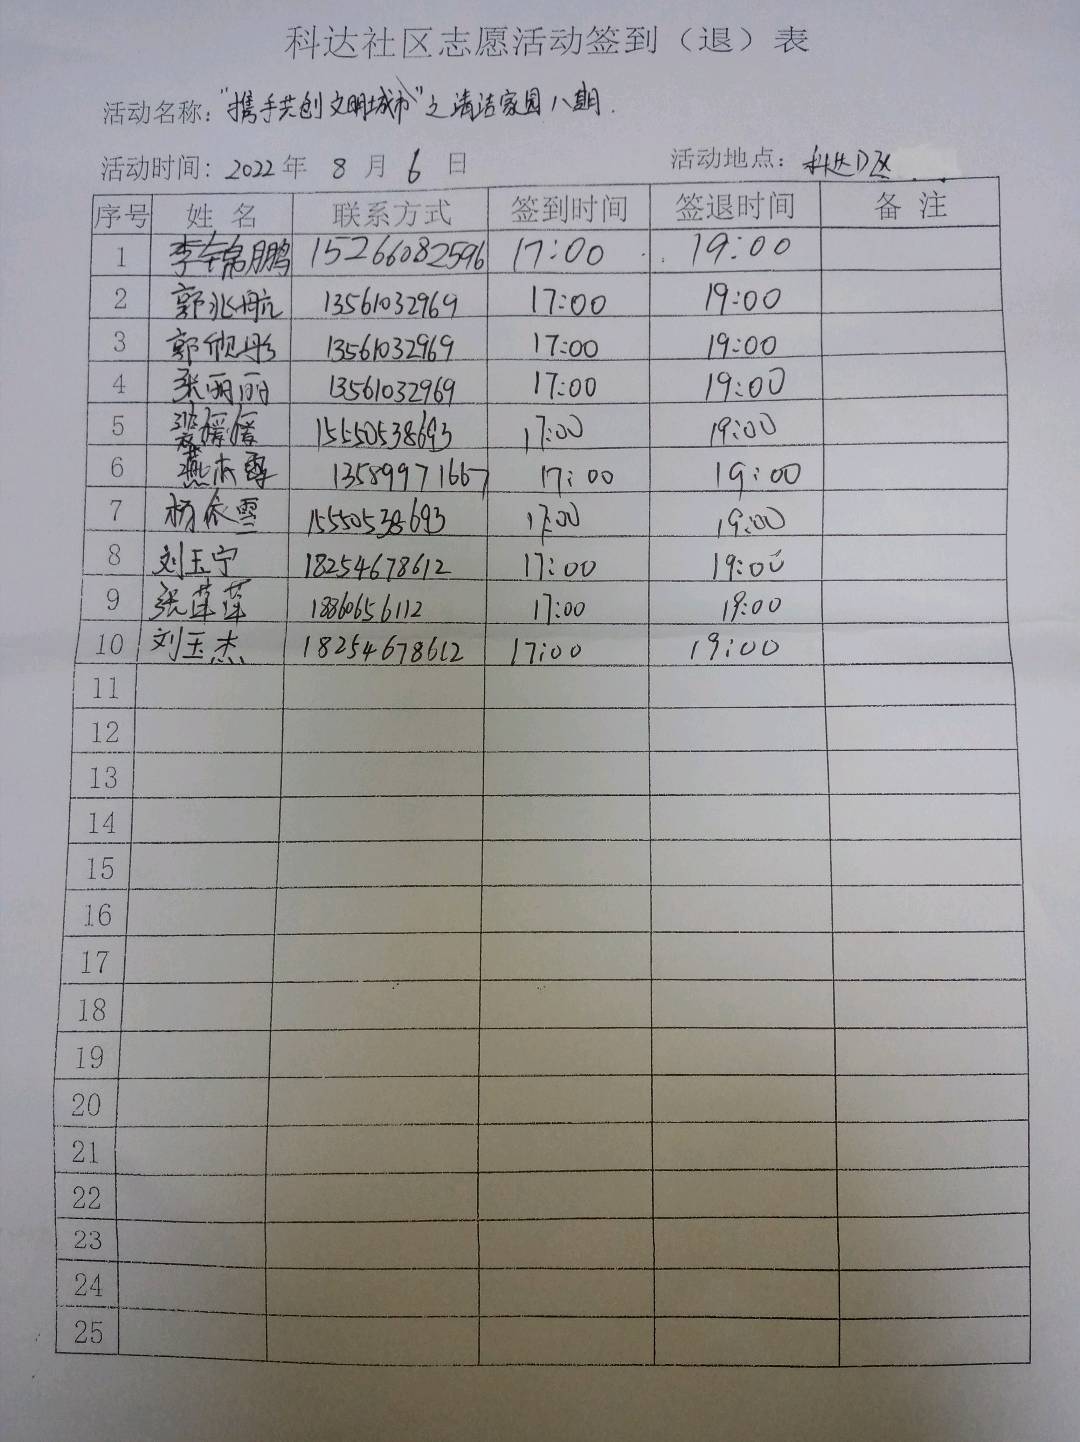 科达社区志愿活动签到（退）表
活动名称："携手共创文明城市"之清洁家园八期.
活动时间：2022年 8 月 6 日 活动地点：科达D区
序号 姓 名 联系方式 签到时间 签退时间 备 注
1 李锦鹏 15266082596 17:00 19:00
2 郭兆航 13561032969 17:00 19:00
3 郭欣彤 13561032969 17:00 19:00
4 张丽丽 13561032969 17:00 19:00
5 媛媛 15550538693 17:00 19:00
6 燕 13589971667 17:00 19:00
7 杨依雪 15550538693 17:00 19:00
8 刘玉宁 18254678612 17:00 19:00
9 张莲莲 18860656112 17:00 19:00
10 刘玉杰 18254678612 17:00 19:00
11
12
13
14
15
16
17
18
19
20
21
22
23
24
25